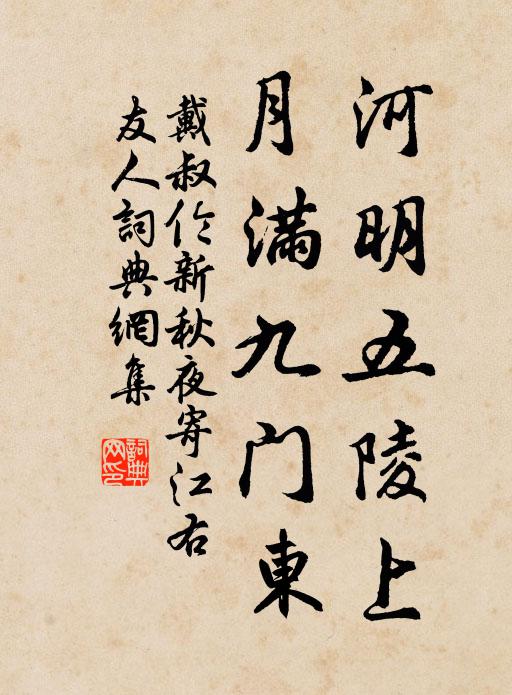 河明五陵上
月滿九門東
戴叔倫新秋夜寄江右
友人詞典網集
詞典
网印